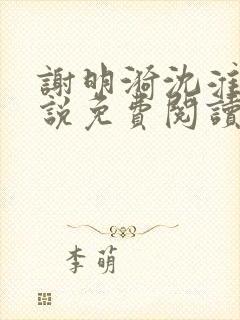 謝明漪沈淮
說免費閱讀
李萌